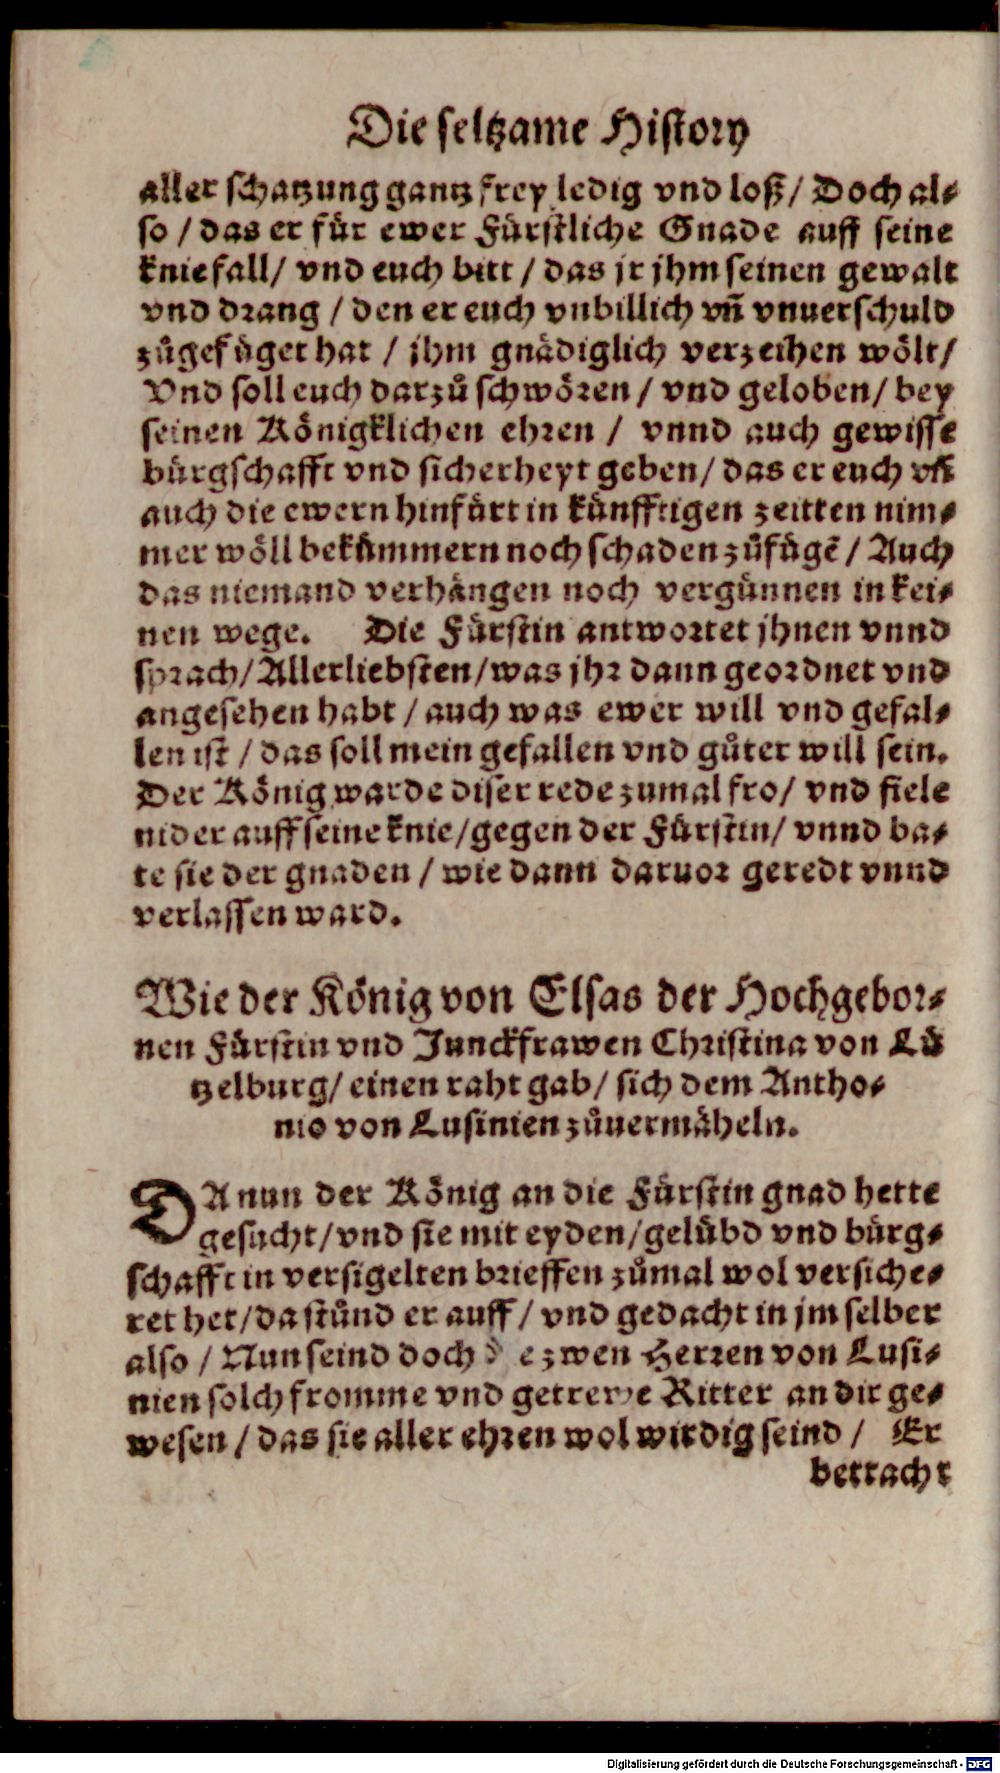 Die seltzame History
aller schatzung gantz frey ledig vnd loß/ Doch al⸗
so / das er für ewer Fürstliche Gnade auff seine
knie fall/ vnd euch bitt / das jr jhm seinen gewalt
vnd drang / den er euch vnbillich vñ vnuerschuld
zůgefüget hat / jhm gnädiglich verzeihen wölt/
Vnd soll euch darzů schwören / vnd geloben/ bey
seinen Königklichen ehren / vnnd auch gewisse
bürgschafft vnd sicherheyt geben/ das er euch vñ
auch die ewern hinfürt in künfftigen zeitten nim⸗
mer wöll bekümmern noch schaden zůfügẽ / Auch
das niemand verhängen noch vergünnen in kei⸗
nen wege. Die Fürstin antwortet jhnen vnnd
sprach/ Allerliebsten/ was jhr dann geordnet vnd
angesehen habt / auch was ewer will vnd gefal⸗
len ist / das soll mein gefallen vnd gůter will sein.
Der König warde diser rede zumal fro/ vnd fiele
nider auff seine knie/ gegen der Fürstin/ vnnd ba⸗
te sie der gnaden / wie dann daruor geredt vnnd
verlassen ward.
Wie der König von Elsas der Hochgebor⸗
nen Fürstin vnd Junckfrawen Christina von Lü
tzelburg/ einen raht gab/ sich dem Antho⸗
nio von Lusinien zůuermäheln.
DA nun der König an die Fürstin gnad hette
gesucht/ vnd sie mit eyden/ gelübd vnd bürg⸗
schafft in versigelten brieffen zůmal wol versiche⸗
ret het/ da stůnd er auff / vnd gedacht in jm selber
also / Nun seind doch die zwen Herren von Lusi⸗
nien solch fromme vnd getrewe Ritter an dir ge⸗
wesen / das sie aller ehren wol wirdig seind / Er
betracht
Digitalisierung gefördert durch die Deutsche Forschungsgemeinschaft - DFG